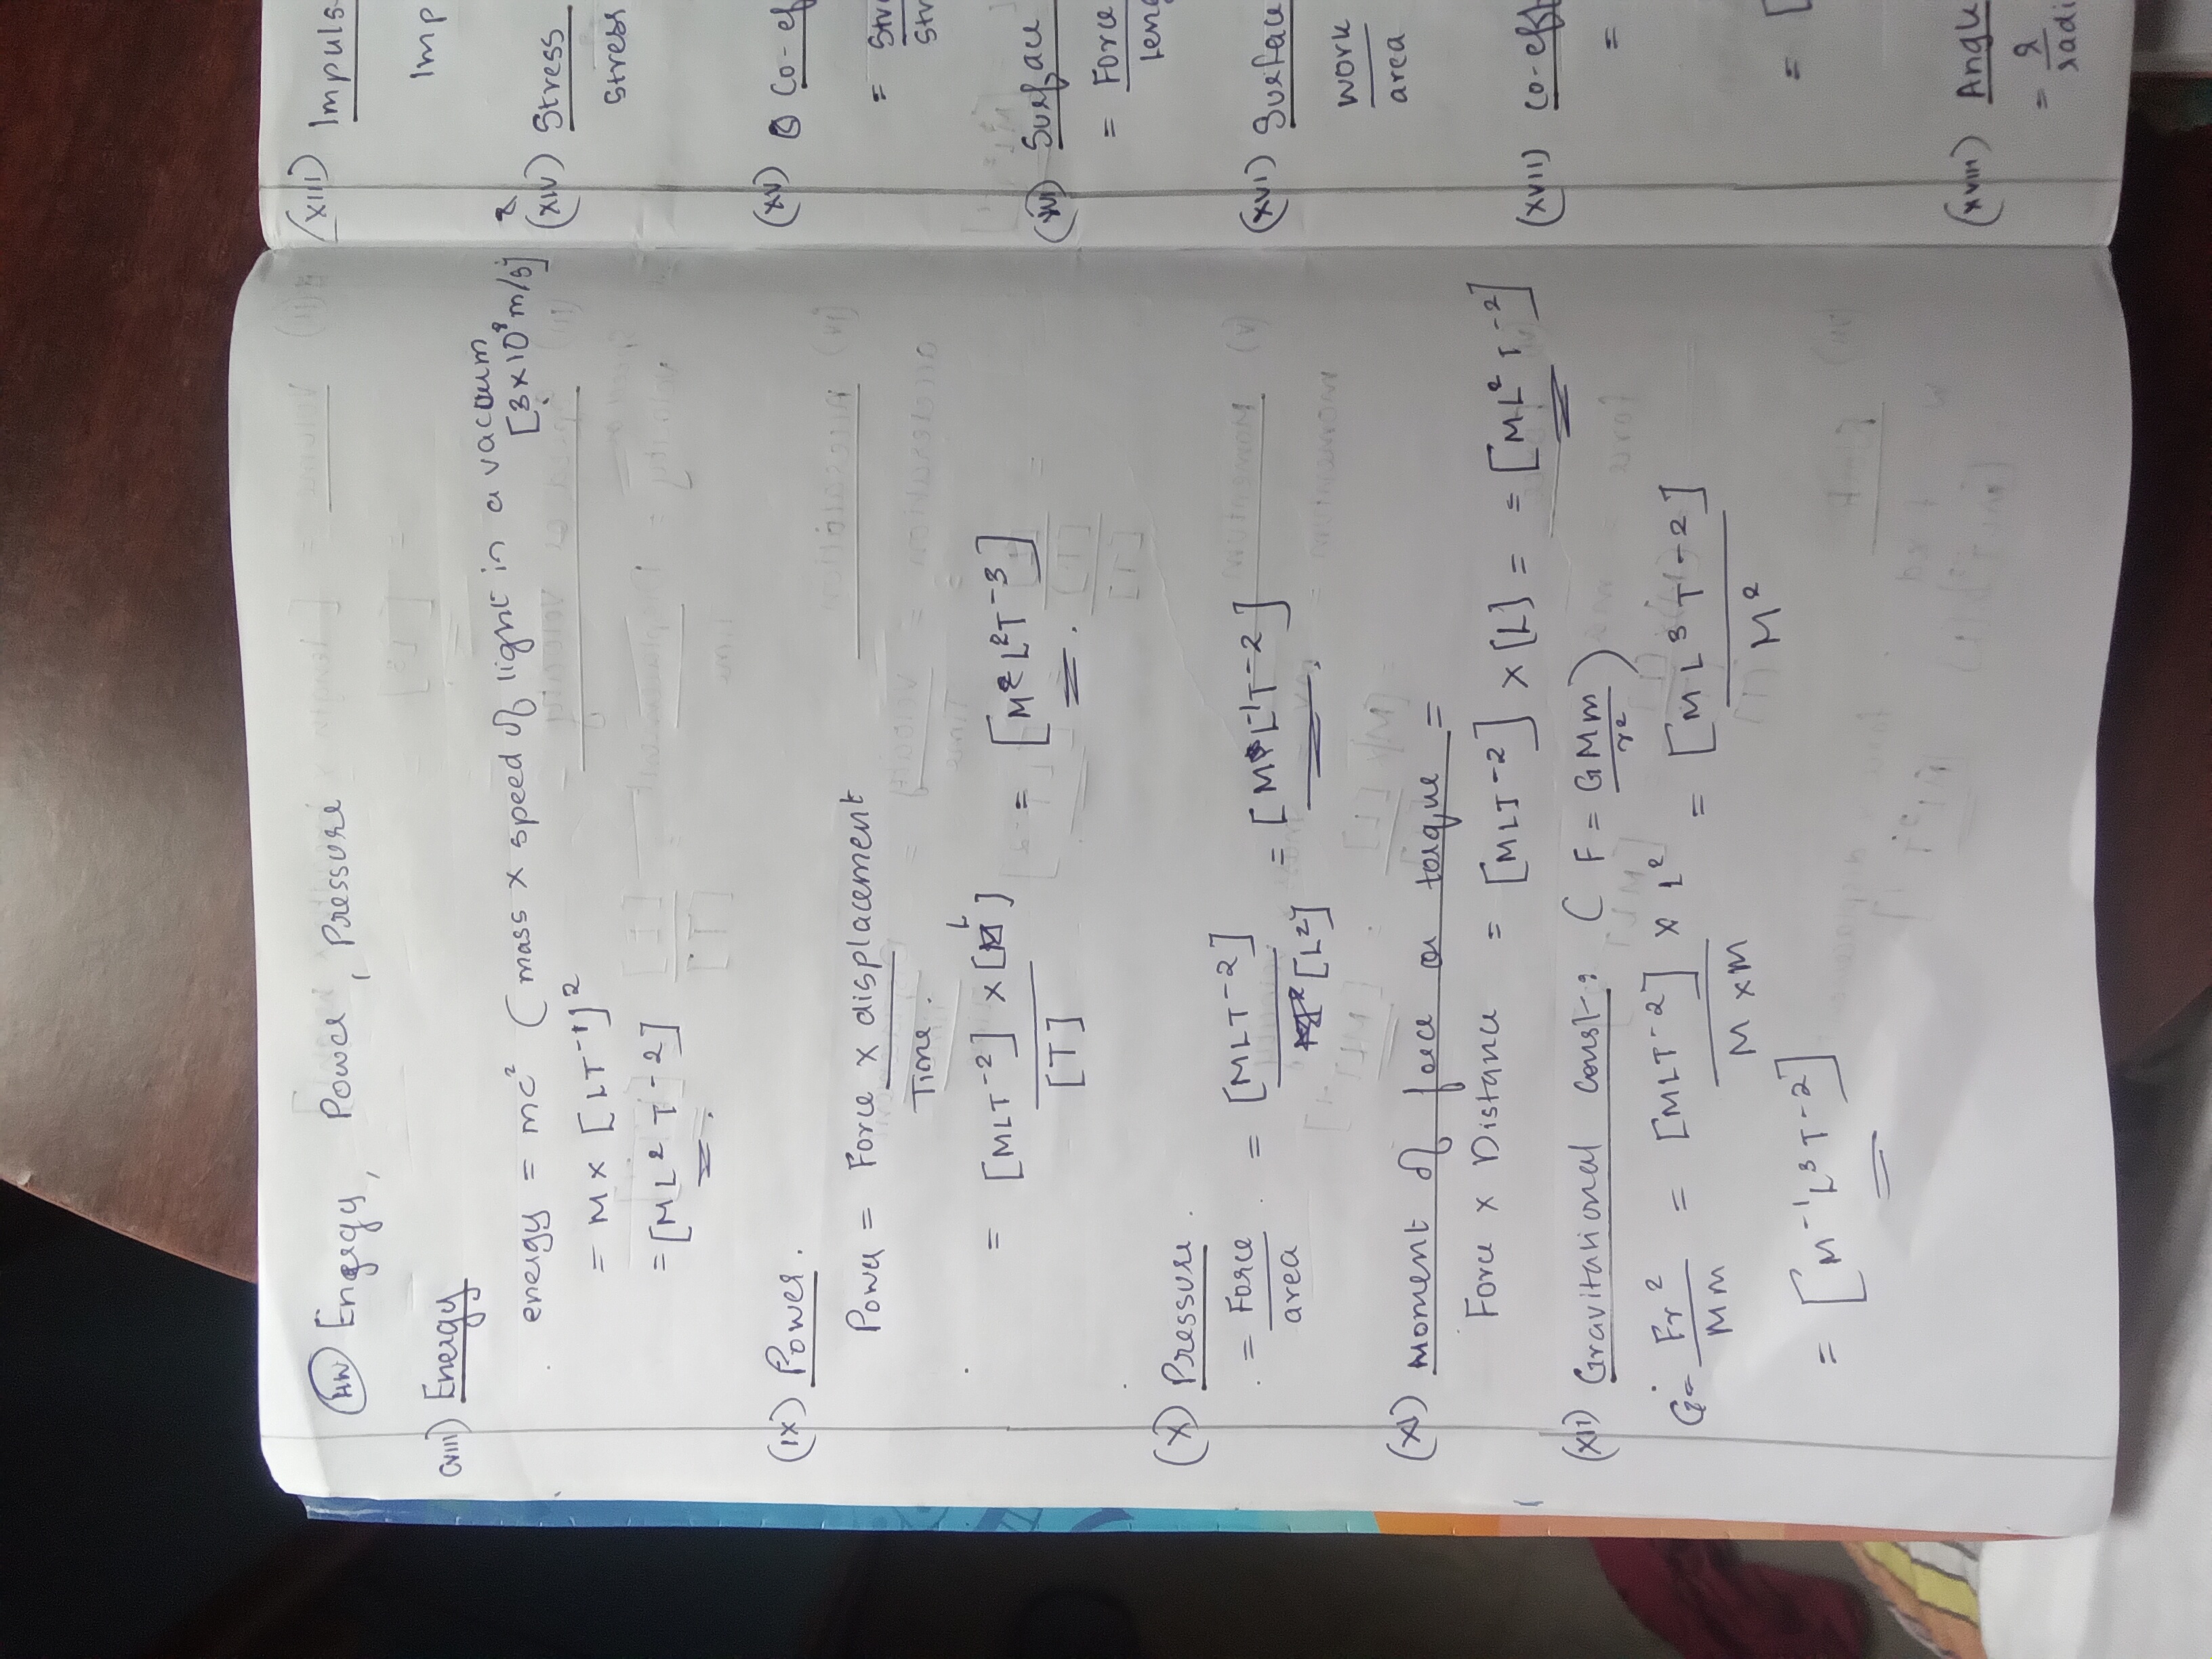 HW Energy, Power, Pressure
(viii) Energy
energy = mc² (mass x speed of light in a vacuum
[3x10⁸m/s]
= M x [LT⁻¹]²
= [ML²T-2]
(ix) Power.
Power = Force x displacement
Time.
= [MLT⁻²] x [L]
[T]
= [M L²T⁻³]
(x) Pressure.
= Force
area
= [MLT⁻²]
[L²]
= [M L⁻¹T-2]
(xi) Moment of force or torque =
Force x Distance = [MLT⁻²] x [L] = = [ML²T⁻²]
(xii) Gravitational const; (F = GMm
r²)
G = Fr²
Mm
= [MLT⁻²] x L²
M x M
= [ML³T-2]
M²
= [M⁻¹L³T-2]
(xiii) Impuls
Imp
(xiv) Stress
Stress
(xv) Co-ef
= Str
Str
(xvi) Surface
= Force
Leng
(xvi) Surface
Work
area
(xvii) Co-eff
=
= [
(xviii) Angu
=
radi